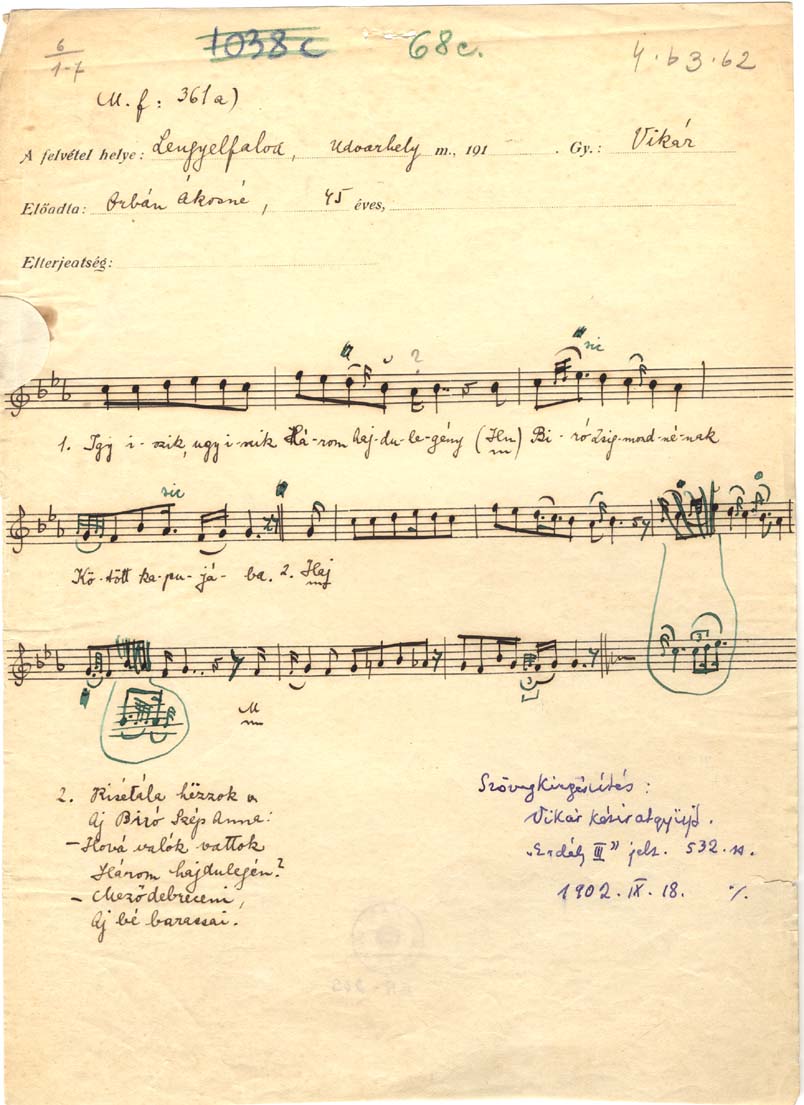 6/1-7
1038c
68c.
4.b3.62
M. f: 361a)
A felvétel helye: Lengyelfalva, Udvarhely m., 191 . Gy.: Vikár
Előadta: Orbán Ákosné, 45 éves,
Elterjeatség:
?
sic
1. Igy i-szik, ugy i-szik Há-rom haj-du-le-gény (Hn) Bi-ró Zsig-mond-né-nak
sic
Kö-tött ka-pu-já-ba. 2. Haj
3
M
2. Kisétála hézzok a
Aj Biró Szép Anna:
- Hová valók vattok
Három hajdulegén?
- Meződebreceni,
Aj bé barassai.
Szövegkiegészítés:
Vikár kéziratgyüjt.
„Erdély III" jelz. 532. sz.
1902. IX. 18. %.